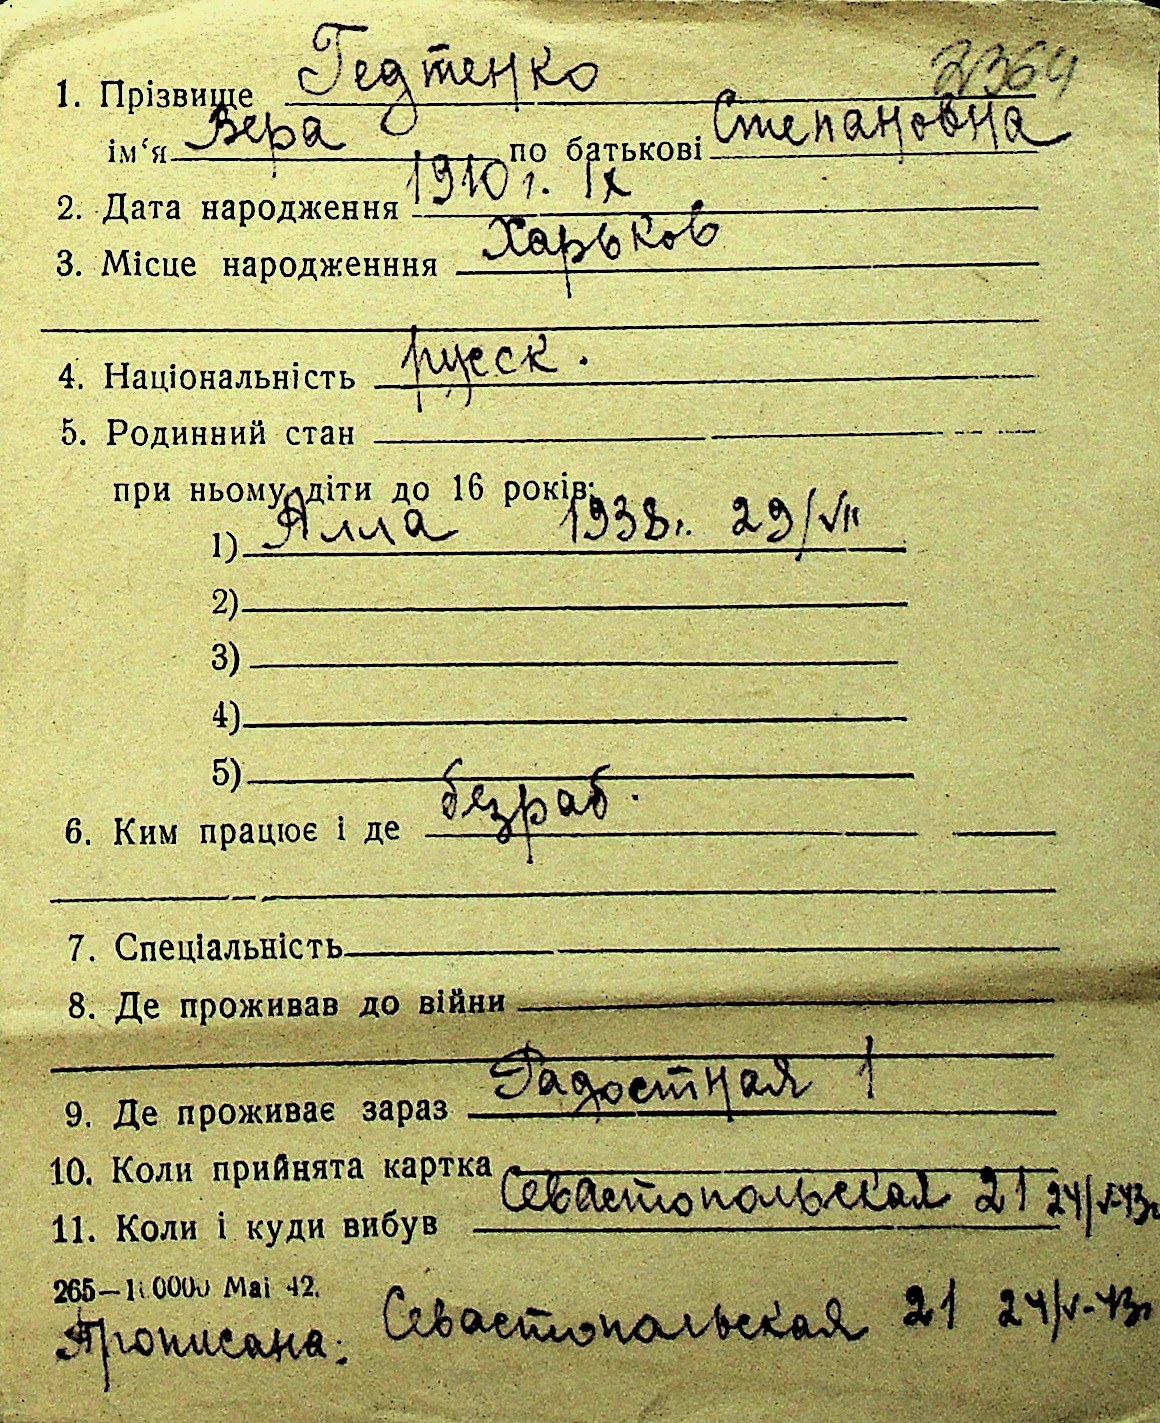 2364
1. Прізвище Гедтенко
ім‘я Вера по батькові Степановна
2. Дата народження 1910 г. IX
3. Місце народженння Харьков
4. Національність русск.
5. Родинний стан
при ньому діти до 16 років:
1) Алла 1938 г. 29/VII
2)
3)
4)
5)
6. Ким працює і де безраб.
7. Спеціальність
8. Де проживав до війни
9. Де проживає зараз Радостная 1
10. Коли прийнята картка
11. Коли і куди вибув Севастопольская 21 24/V-43г
265— Mai 42.
Прописана: Севастопольская 21 24/V-43г